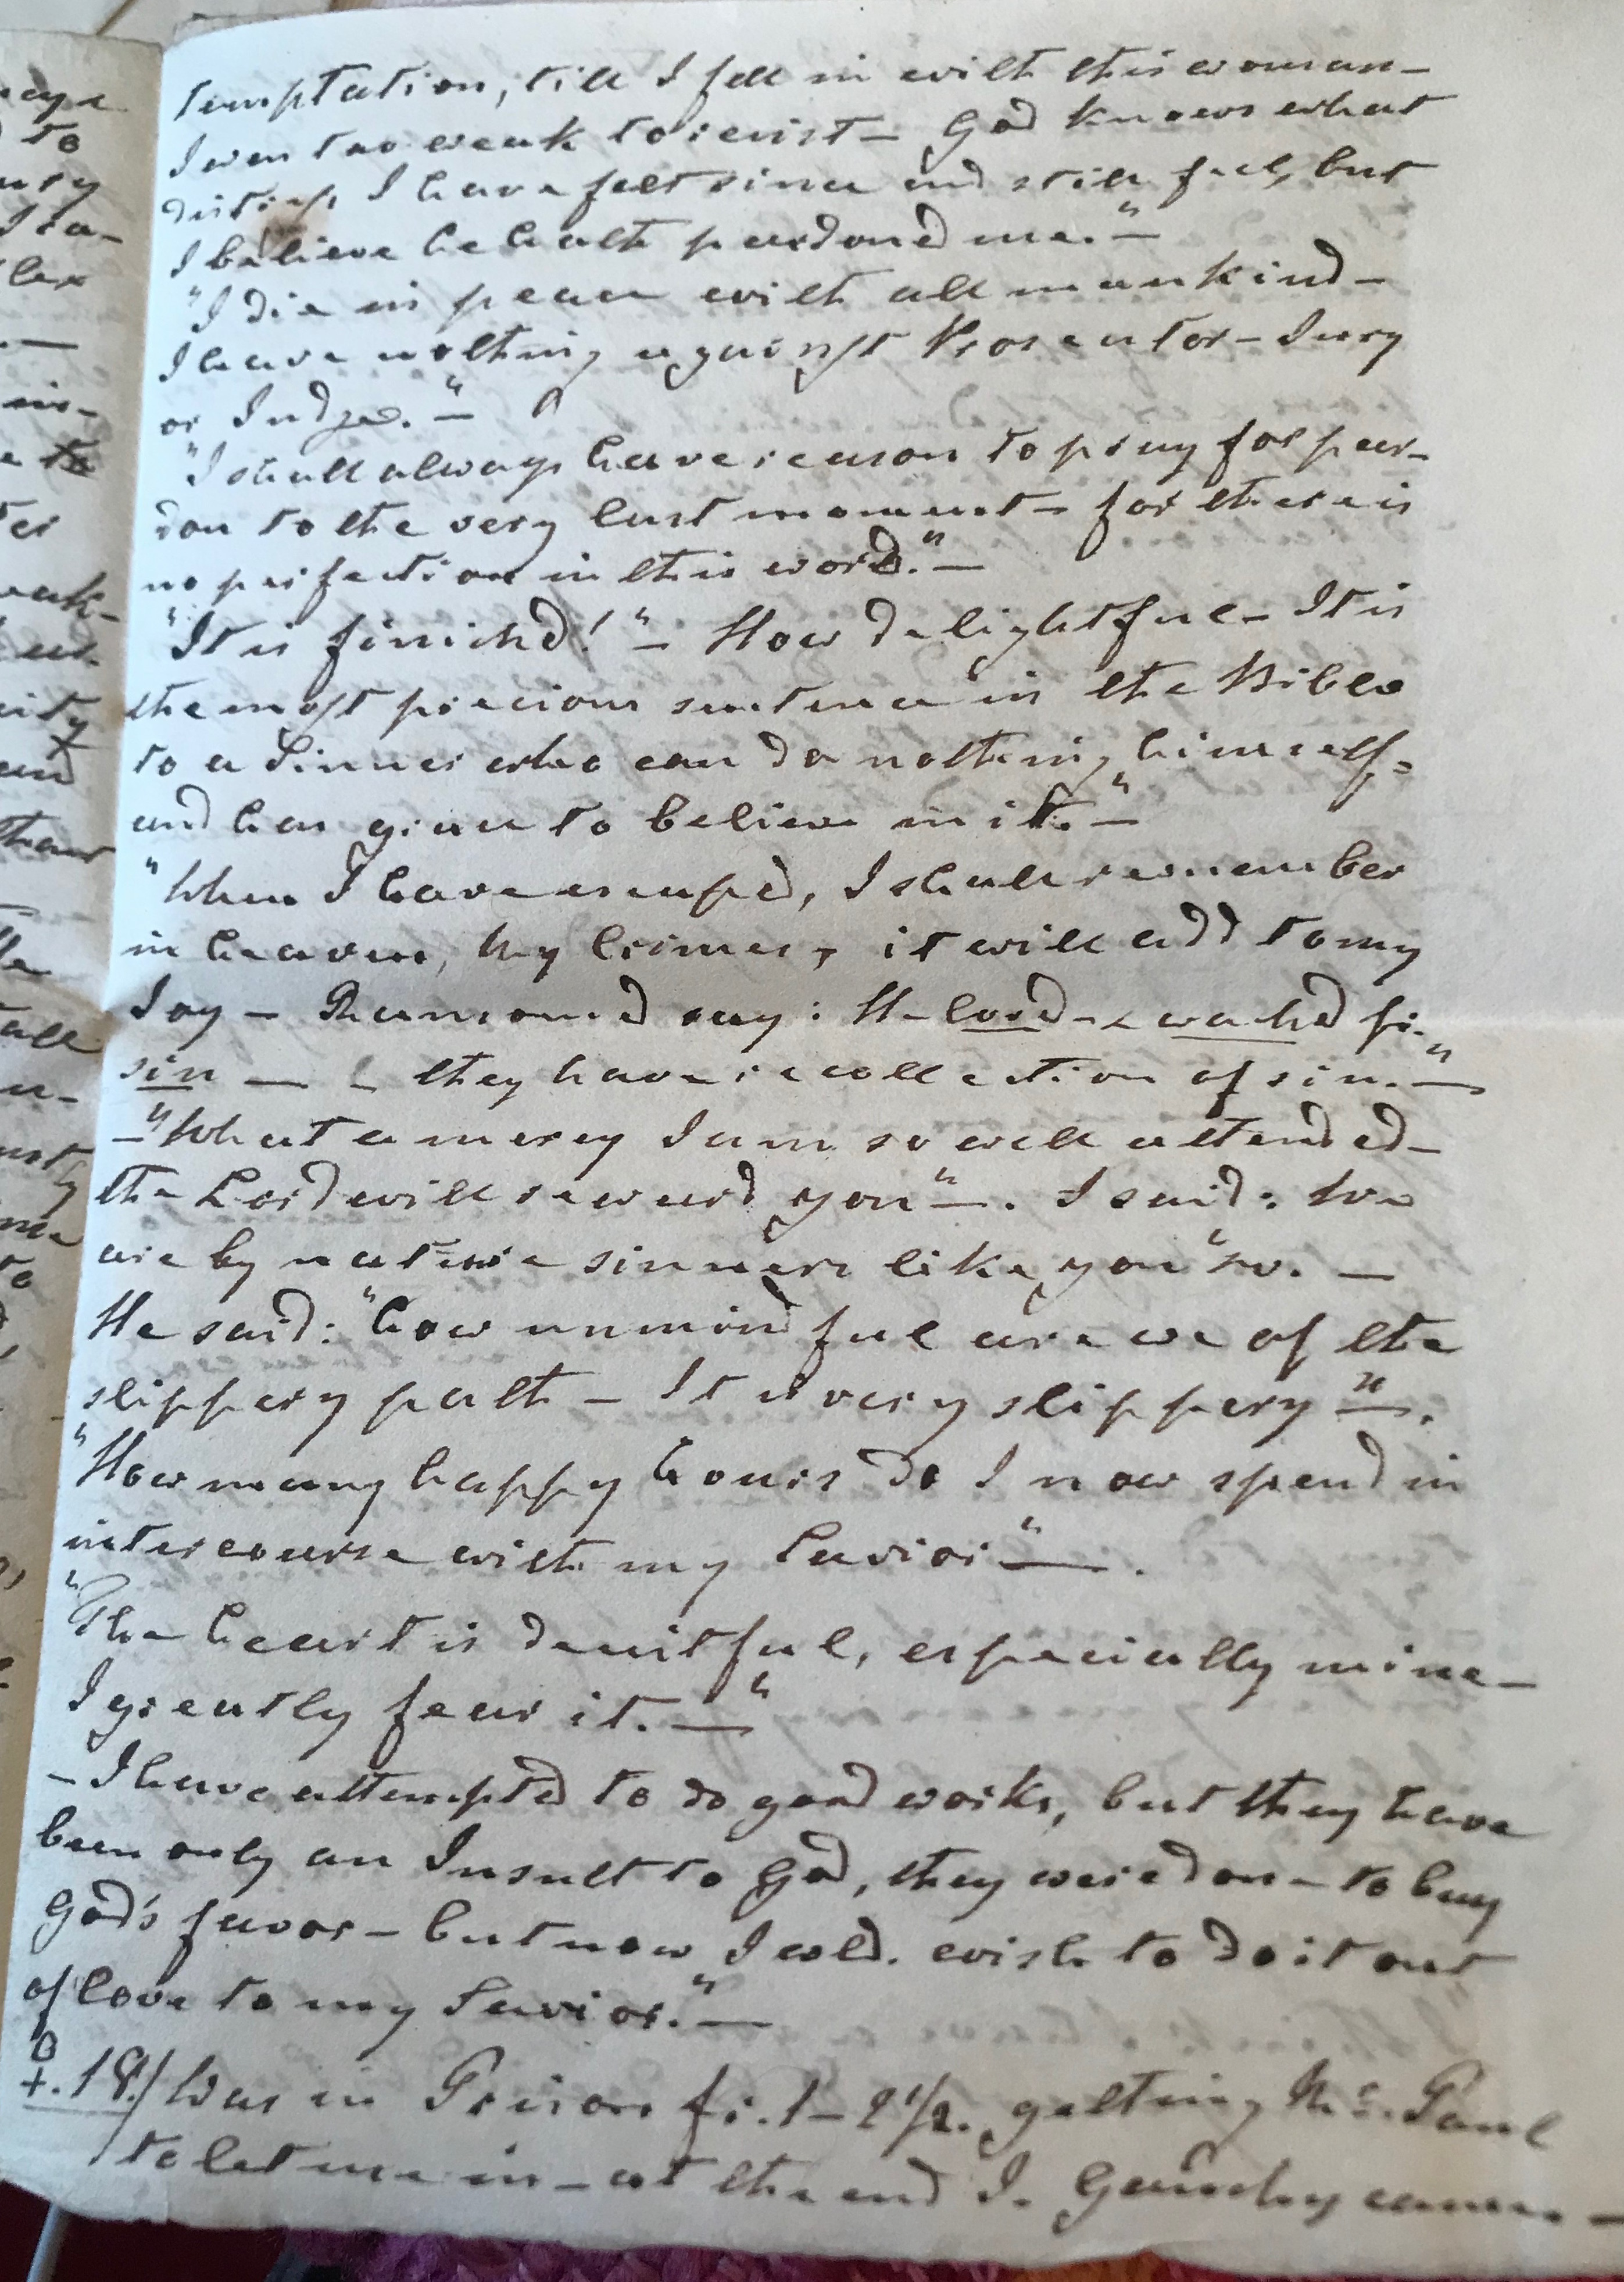 temptation, till I fell in with this woman –
I was too weak to resist – God knows what
distress I have felt since and still feel, but
I believe he hath pardoned me." –
"I die in peace with all mankind –
I have nothing against Prosecutor – Jury
or Judge." –
"I shall always have reason to pray for par-
don to the very last moment – for there is
no perfection in this world." –
"It is finished!" – How delightful – It is
the most precious sentence in the Bible
to a Sinner who can do nothing himself =
and has given to believe in it." –
"When I have escaped, I shall remember
in heaven, my Crimes, it will add to my
Joy – Ransomed say: He loved – & washed fr.
sin — they have recollection of sin." —
– "What a mercy I am so well attended –
the Lord will reward you" –. I said: We
are by nature sinners like you". –
He said: "how unmindful are we of the
slippery path – It is very slippery" –.
"How many happy hours do I now spend in
intercourse with my Savior" —.
"The heart is deceitful, especially mine –
I greatly fear it. —"
– I have attempted to do good works, but they have
been only an Insult to God, they were done to buy
God's favor – but now I wld. wish to do it out
of love to my Savior." —
♀. 18/ Was in Prison fr. 1 – 2 1/2. getting Mr. Paul
to let me in – at the end J. Gambey came –